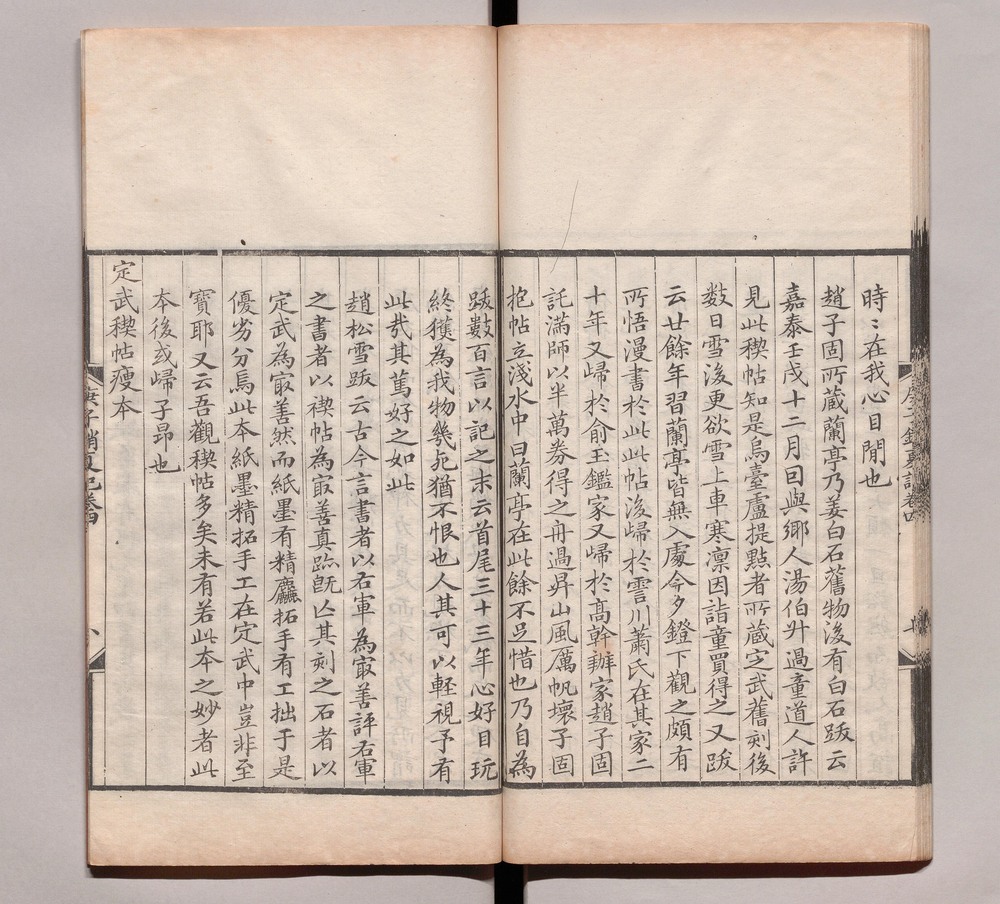 時〻在我心目間也
趙子固所藏蘭亭乃姜白石舊物後有白石跋云
嘉泰壬戌十二月回與鄉人湯伯升過童道人許
見此稧帖知是烏臺盧提點者所藏定武舊刻後
数日雪後更欲雪上車寒凛因詣童買得之又跋
云廿餘年習蘭亭皆無入處今夕鐙下觀之頗有
所悟漫書於此此帖後歸於霅川蕭氏在其家二
十年又歸於俞玉鑑家又歸於高幹辦家趙子固
託滿師以半萬券得之舟過昇山風厲帆壞子固
抱帖立淺水中曰蘭亭在此餘不足惜也乃自為
跋數百言以記之末云首尾三十三年心好目玩
終獲為我物幾死猶不恨也人其可以輕視予有
此㢤其篤好之如此
趙松雪跋云古今言書者以右軍為㝡善評右軍
之書者以禊帖為㝡善真跡旣亾其刻之石者以
定武為㝡善然而紙墨有精麤拓手有工拙于是
優劣分焉此本紙墨精拓手工在定武中豈非至
寶耶又云吾觀稧帖多矣未有若此本之妙者此
本後或歸子昂也
定武稧帖瘦本
庚子銷夏記卷四
八